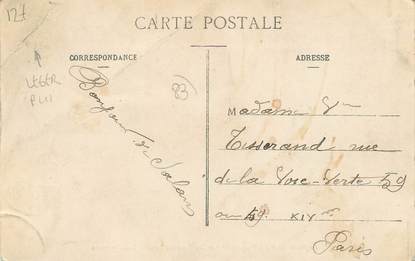 127
CARTE POSTALE
CORRESPONDANCE
ADRESSE
LEGER
PLI
83
Bonjour de Salau
Madame Vve
Tisserand rue
de la Voie-Verte 59
au 59. XIVme
Paris